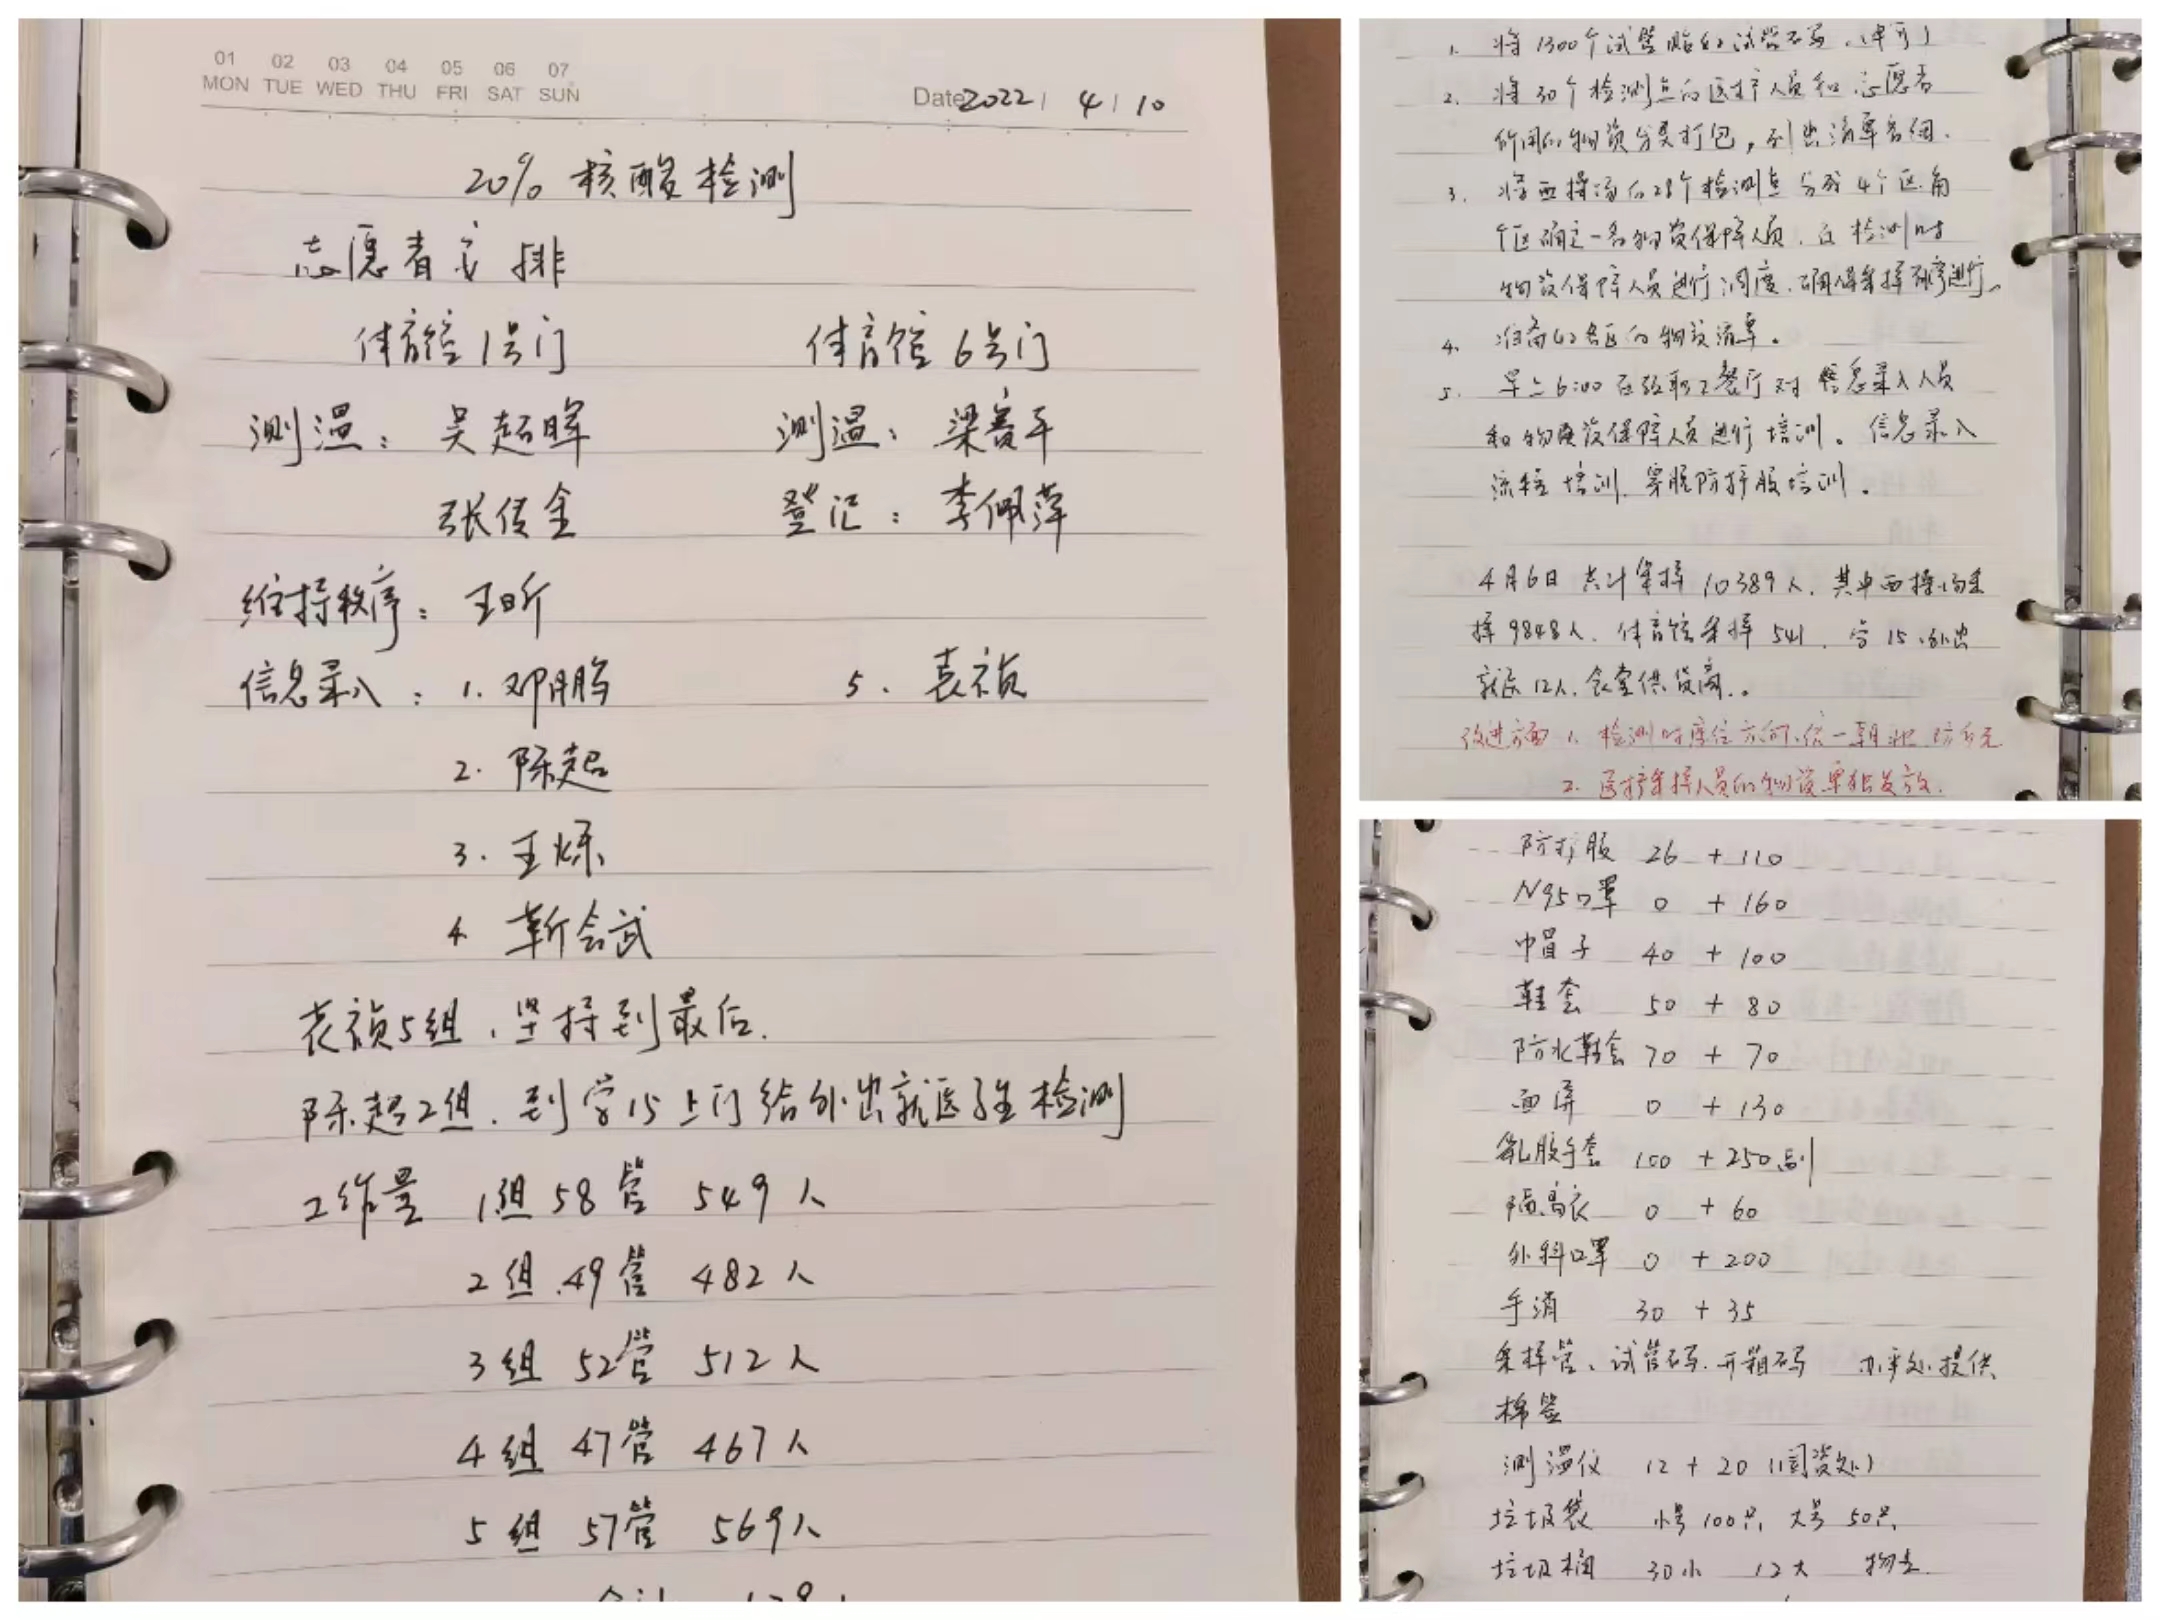 01 02 03 04 05 06 07
MON TUE WED THU FRI SAT SUN
Date 2022 / 4 / 10
20% 核酸检测
志愿者安排
体育馆1号门 体育馆6号门
测温: 吴超晖 测温: 梁春平
张传金 登记: 李佩萍
维持秩序: 王昕
信息录入: 1. 邓鹏 5. 袁祯
2. 陈超
3. 王烁
4 靳会武
袁祯5组,坚持到最后.
陈超2组.到学15上门给外出就医学生检测
工作量 1组 58管 549人
2组 49管 482人
3组 52管 512人
4组 47管 467人
5组 57管 569人
1. 将1300个试管贴好试管码.
2. 将30个检测点的医护人员和志愿者
所用的物资分类打包,列出清单各组.
3. 将西操场的28个检测点分成4个区.每
个区确定一名物资保障人员.在检测时
物资保障人员进行调度.确保采样有序进行.
4. 准备好各区的物资清单。
5. 早上6:00在教职工餐厅对信息录入人员
和物资保障人员进行培训。信息录入
流程培训.穿脱防护服培训。
4月6日共计采样10389人.其中西操场采
样9848人.体育馆采样541.含15.外出
就医12人.食堂供货商.
改进方面 1. 检测时座位方向.
2. 医护采样人员的物资单独发放.
防护服 26 + 110
N95口罩 0 + 160
帽子 40 + 100
鞋套 50 + 80
防水鞋套 70 + 70
面屏 0 + 130
乳胶手套 100 + 250副
隔离衣 0 + 60
外科口罩 0 + 200
手消 30 + 35
采样管、试管码.开箱码 办事处提供
棉签
测温仪 12 + 20 (国资处)
垃圾袋 小号100只, 大号50只
垃圾桶 30小 12大